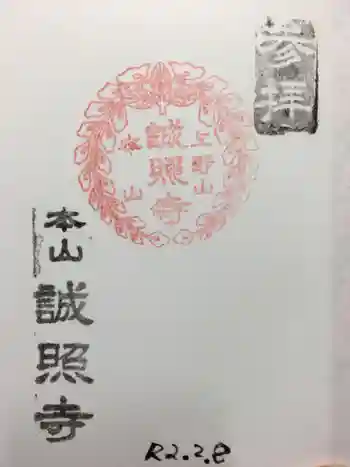 参拝
上野山
誠照寺
本山
本山
誠照寺
R2.2.8